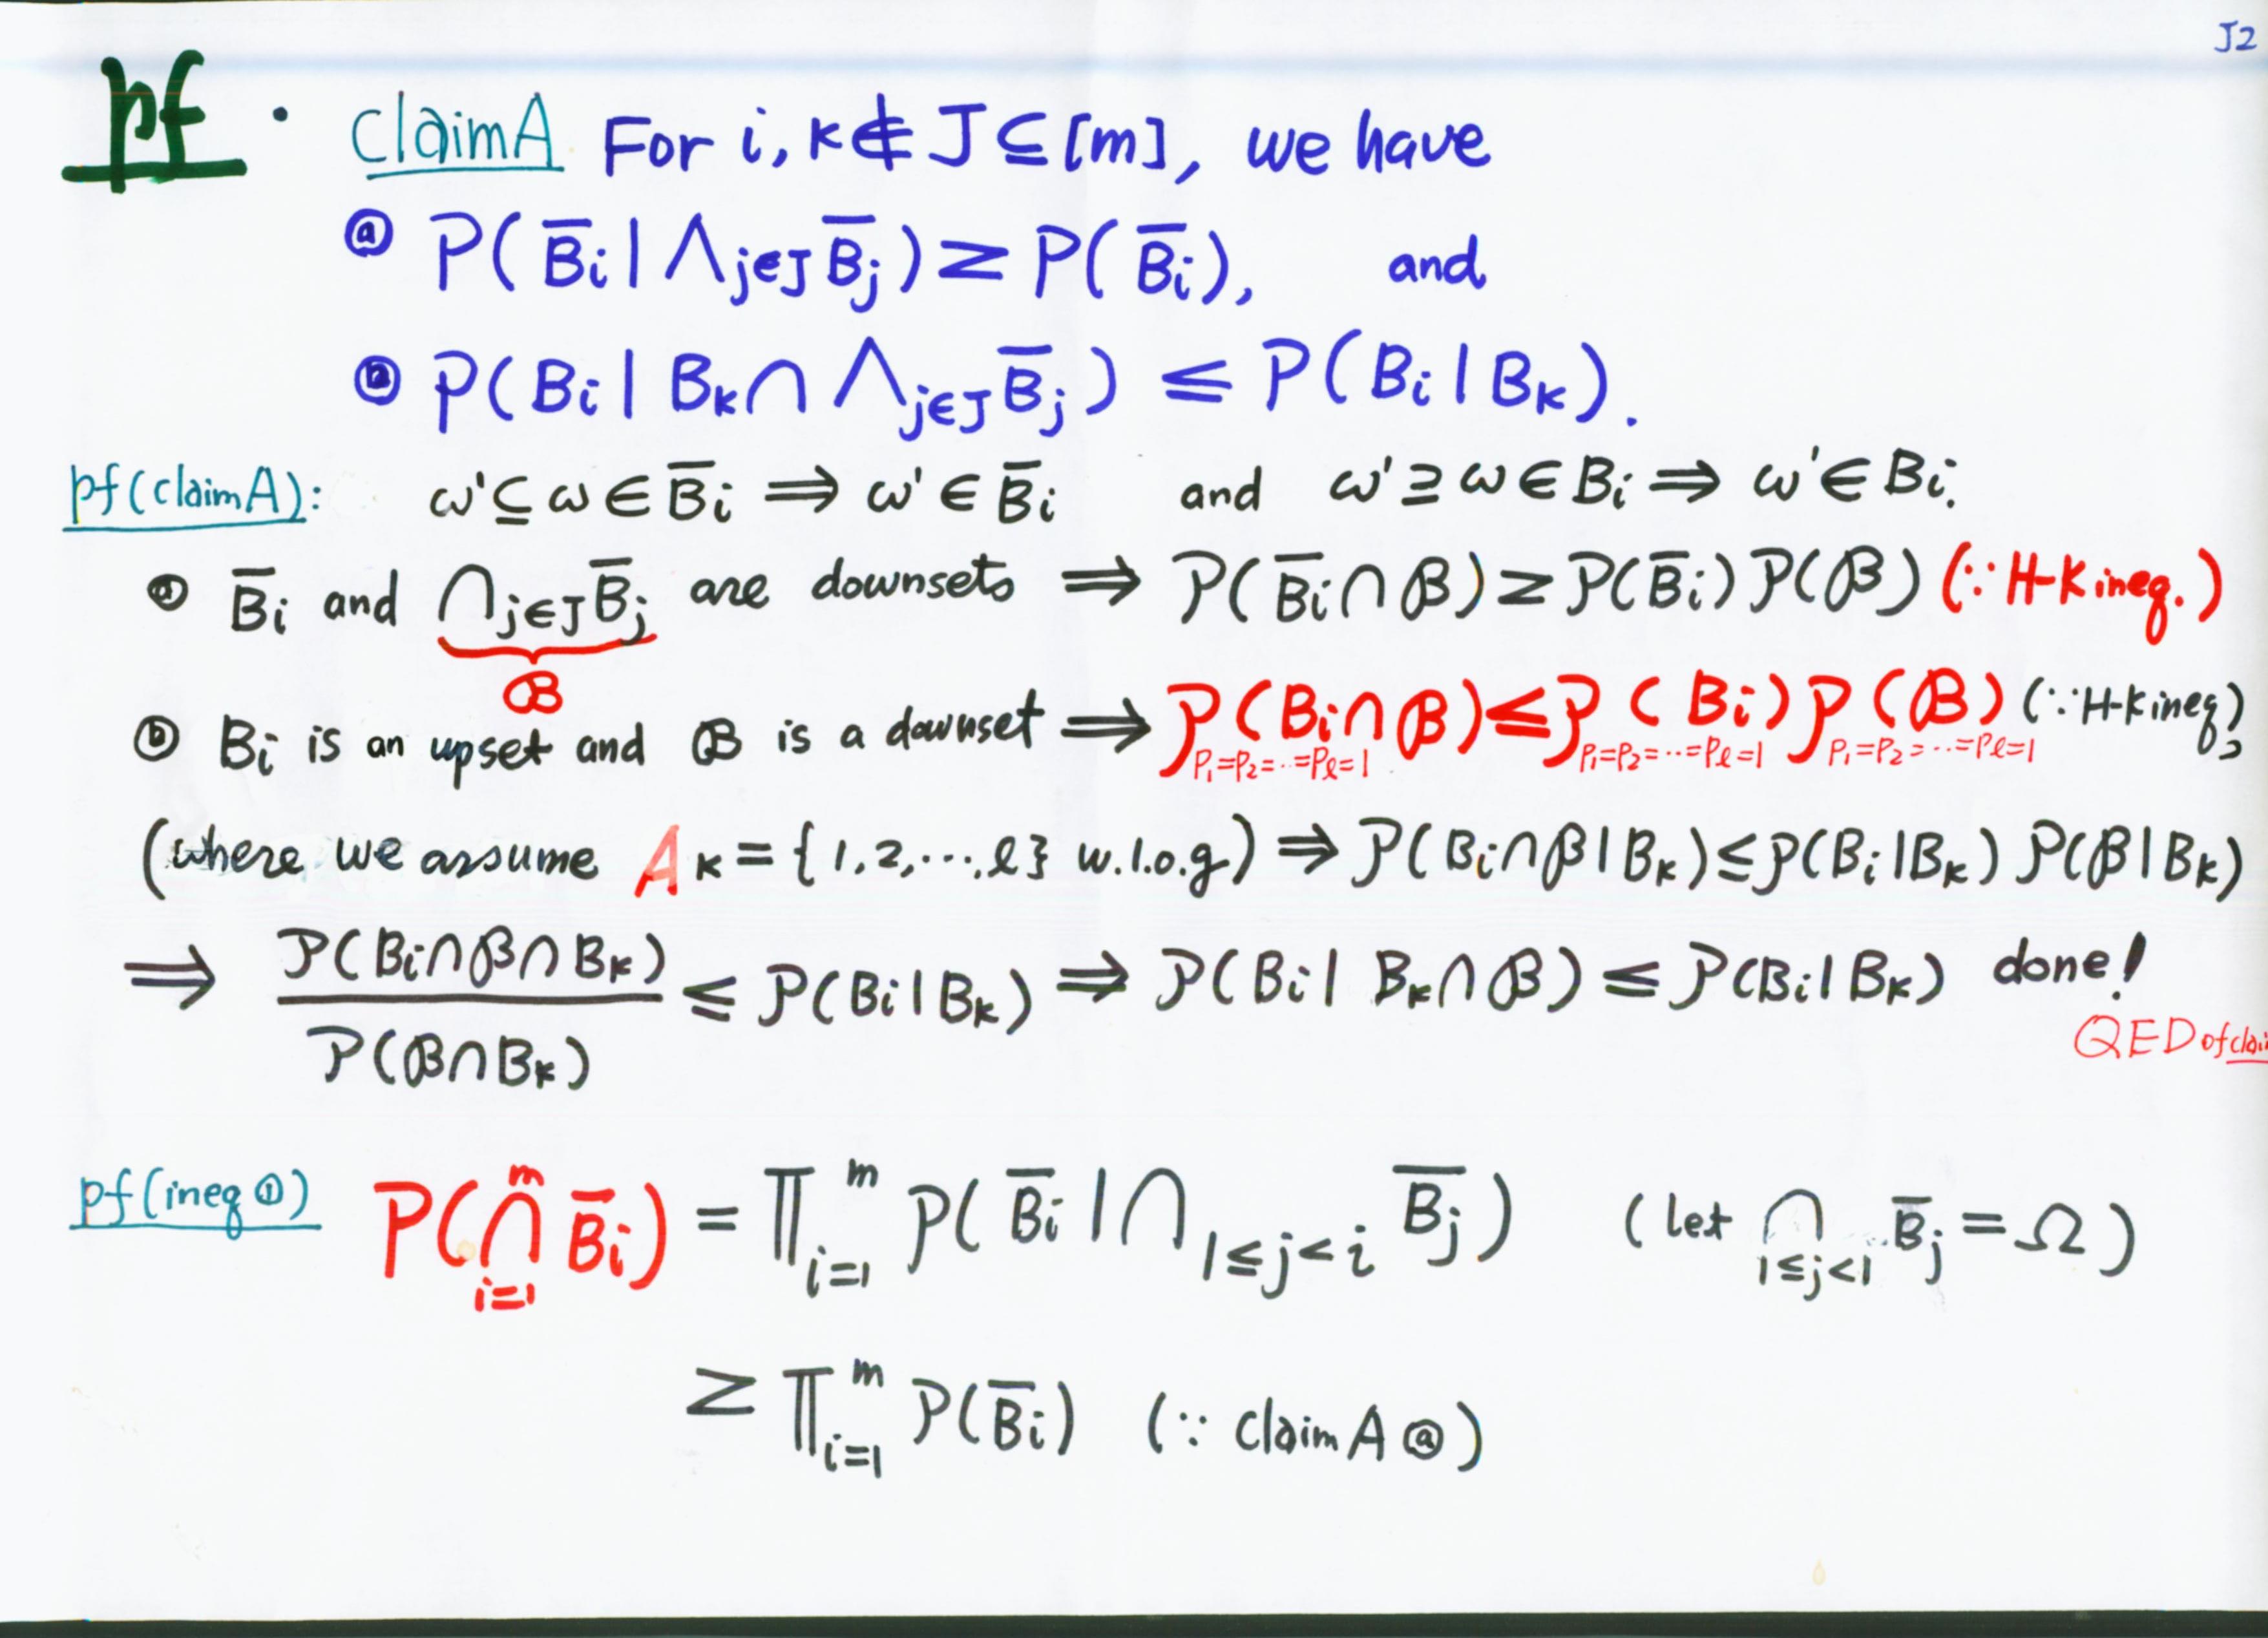 J2
pf · claim A For i, k ∉ J ⊆ [m], we have
ⓐ P( B̅i | ⋀j∈J B̅j ) ≥ P( B̅i ), and
ⓑ P( Bi | Bk ∩ ⋀j∈J B̅j ) ≤ P( Bi | Bk ).
pf (claim A): ω' ⊆ ω ∈ B̅i ⟹ ω' ∈ B̅i and ω' ⊇ ω ∈ Bi ⟹ ω' ∈ Bi.
ⓐ B̅i and ⋂j∈J B̅j are downsets ⟹ P( B̅i ∩ ℬ ) ≥ P( B̅i ) P( ℬ ) (∵ H-K ineq.)
ℬ
ⓑ Bi is an upset and ℬ is a downset ⟹ P ( Bi ∩ ℬ ) ≤ P ( Bi ) P ( ℬ ) (∵ H-K ineq),
P1=P2=...=Pℓ=1 P1=P2=...=Pℓ=1 P1=P2=...=Pℓ=1
(where we assume Ak = {1, 2, ..., ℓ} w.l.o.g) ⟹ P( Bi ∩ ℬ | Bk ) ≤ P( Bi | Bk ) P( ℬ | Bk )
⟹ P( Bi ∩ ℬ ∩ Bk ) / P( ℬ ∩ Bk ) ≤ P( Bi | Bk ) ⟹ P( Bi | Bk ∩ ℬ ) ≤ P( Bi | Bk ) done!
QED of clai
pf (ineq ①) P( ⋂i=1^m B̅i ) = ∏i=1^m P( B̅i | ⋂1≤j<i B̅j ) ( let ⋂1≤j<1 B̅j = Ω )
≥ ∏i=1^m P( B̅i ) (∵ claim A ⓐ)